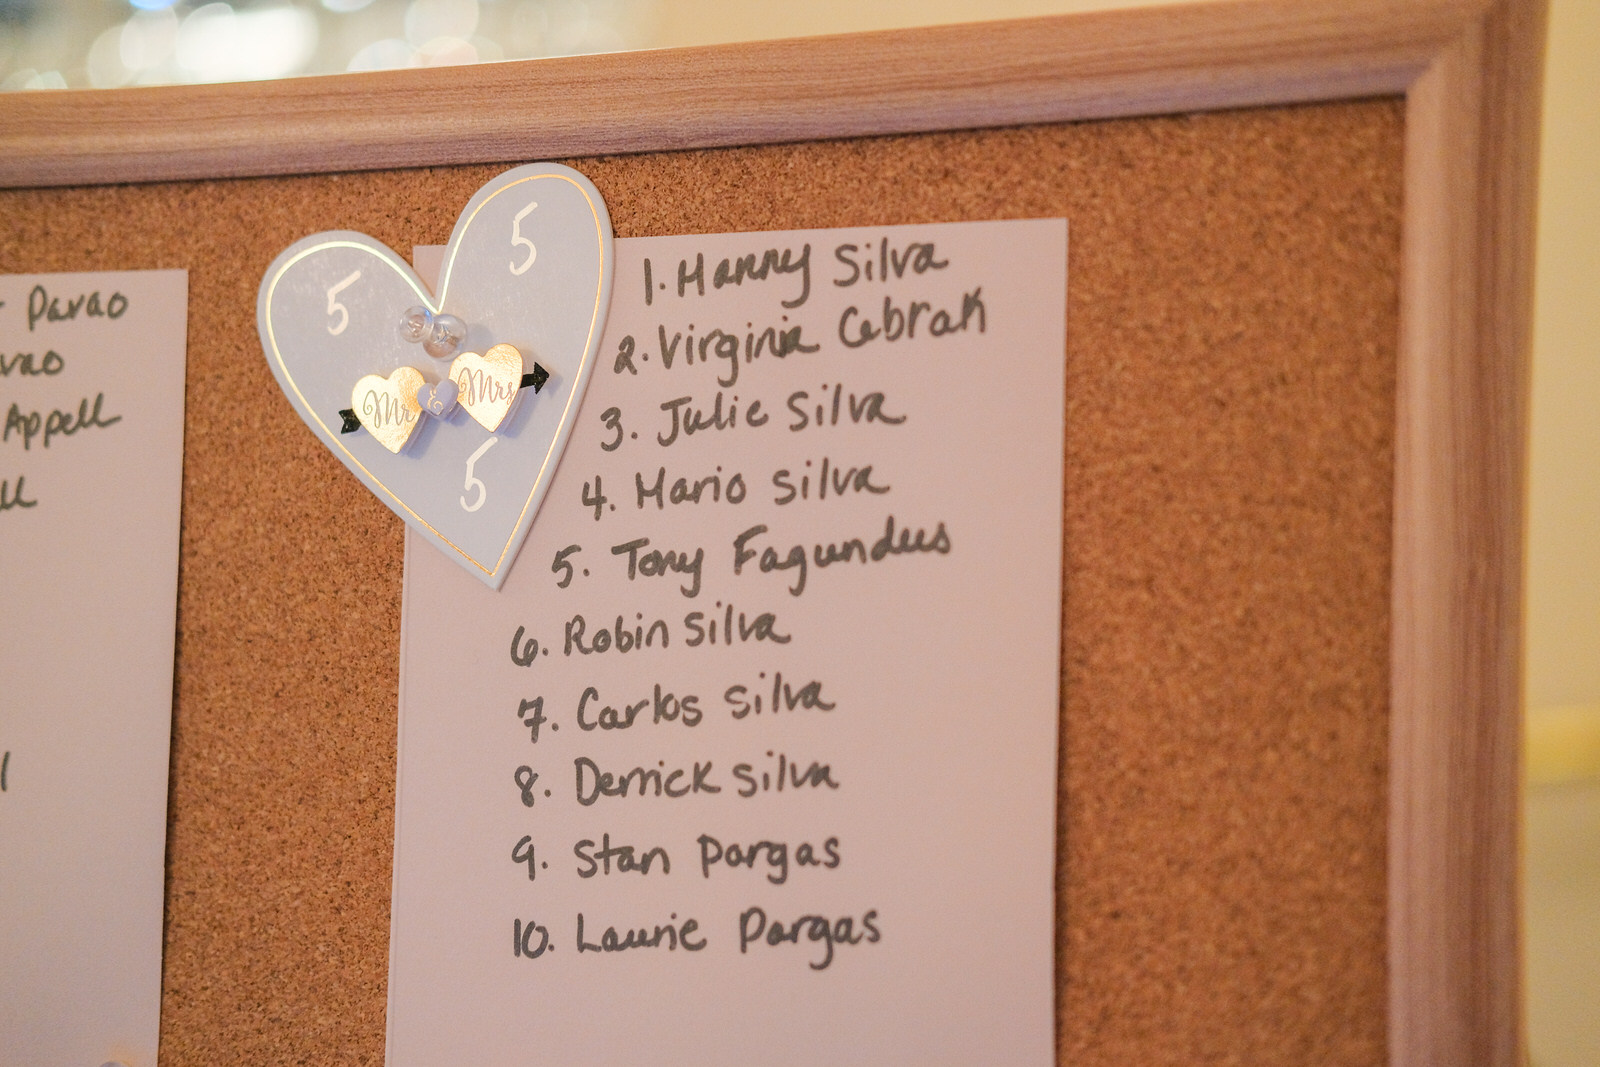 Davao
Appell
5
5
Mr & Mrs
5
1. Manny Silva
2. Virginia Cabrak
3. Julie Silva
4. Mario Silva
5. Tony Fagundus
6. Robin Silva
7. Carlos Silva
8. Derrick Silva
9. Stan Pargas
10. Laurie Pargas